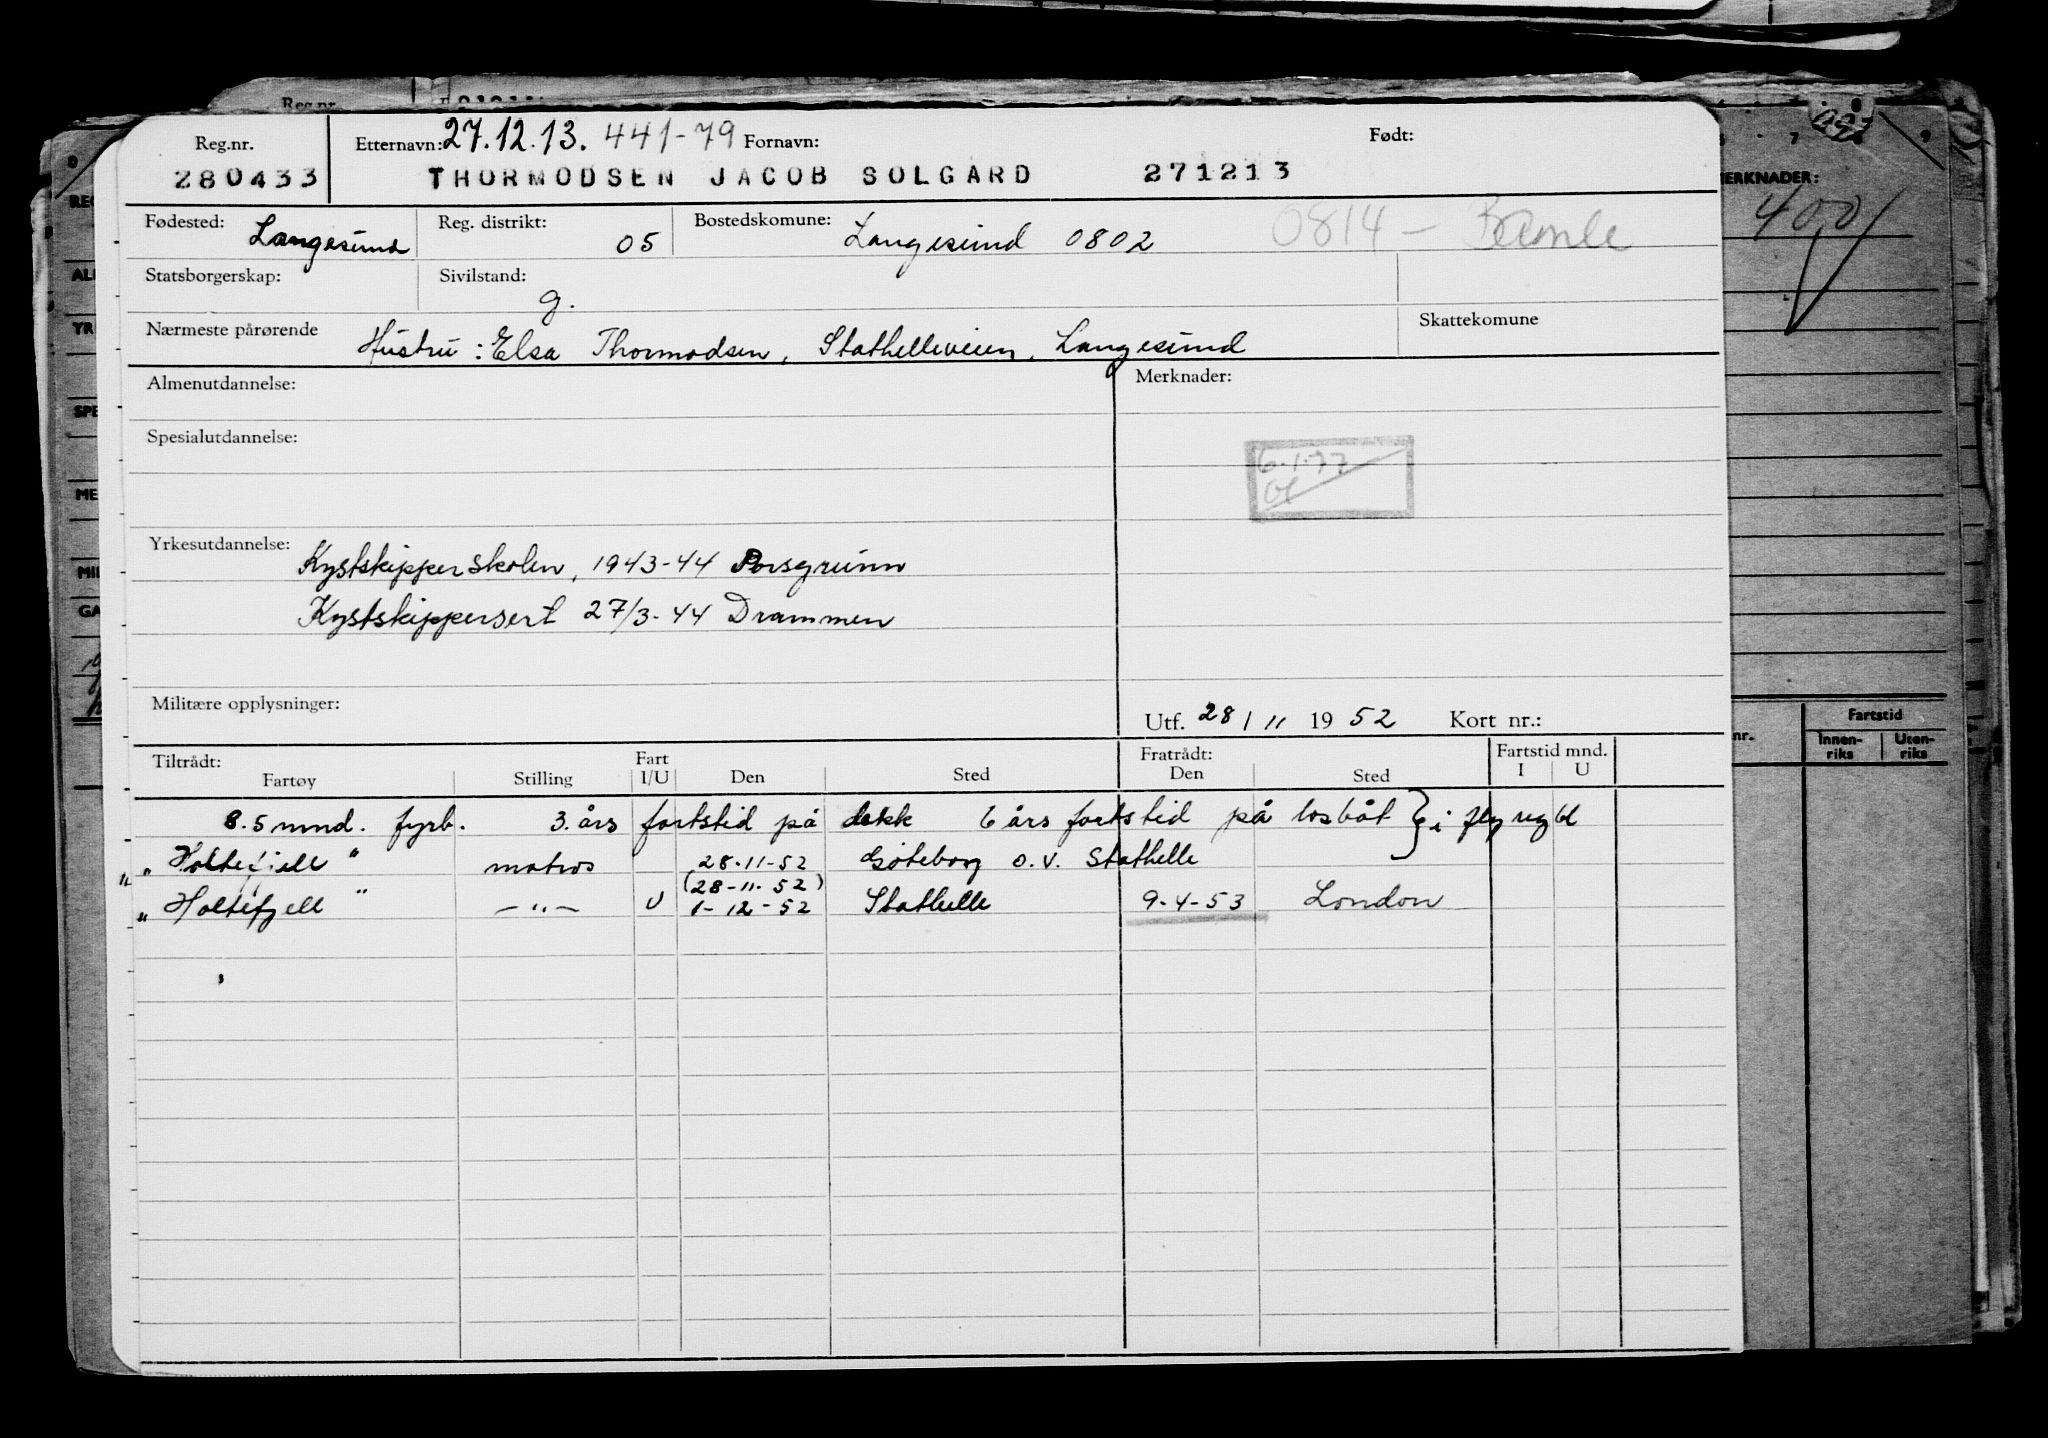 Reg.nr.
Reg.nr. Etternavn: 27.12.13. 441-79 Fornavn: Født:
280433 THORMODSEN JACOB SOLGARD 271213
MERKNADER:
400
Fødested: Langesund Reg. distrikt: 05 Bostedskomune: Langesund 0802 0814 - Bamle
Statsborgerskap: Sivilstand: g.
Nærmeste pårørende Hustru: Elsa Thormodsen, Stathelleveien, Langesund Skattekomune
Almenutdannelse: Merknader:
Spesialutdannelse:
6.1.77
Yrkesutdannelse: Kystskipperskolen, 1943-44 Porsgrunn
Kystskippersert 27/3-44 Drammen
Militære opplysninger: Utf. 28/11 1952 Kort nr.:
Fartstid
Innen-riks Uten-riks
Tiltrådt: Fart Fratrådt: Fartstid mnd.
Fartøy Stilling I/U Den Sted Den Sted I U
8.5 mnd. fyrb. 3. års fartstid på dekk 6 års fartstid på losbåt } i
"Holtefjell" matros 28-11-52 Göteborg o.v. Stathelle
(28-11-52)
"Holtefjell" -"- U 1-12-52 Stathelle 9-4-53 London